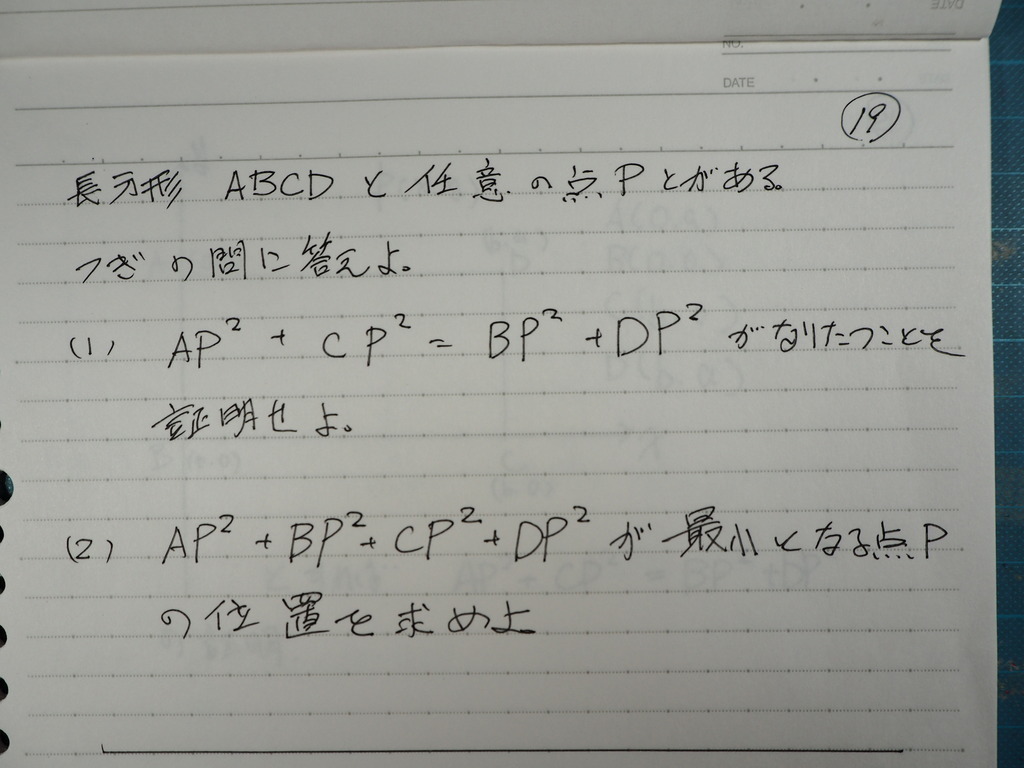 NO.
DATE
19
長方形 ABCD と任意の点Pとがある。
つぎの問に答えよ。
(1) AP² + CP² = BP² + DP² がなりたつことを
証明せよ。
(2) AP² + BP² + CP² + DP² が最小となる点P
の位置を求めよ